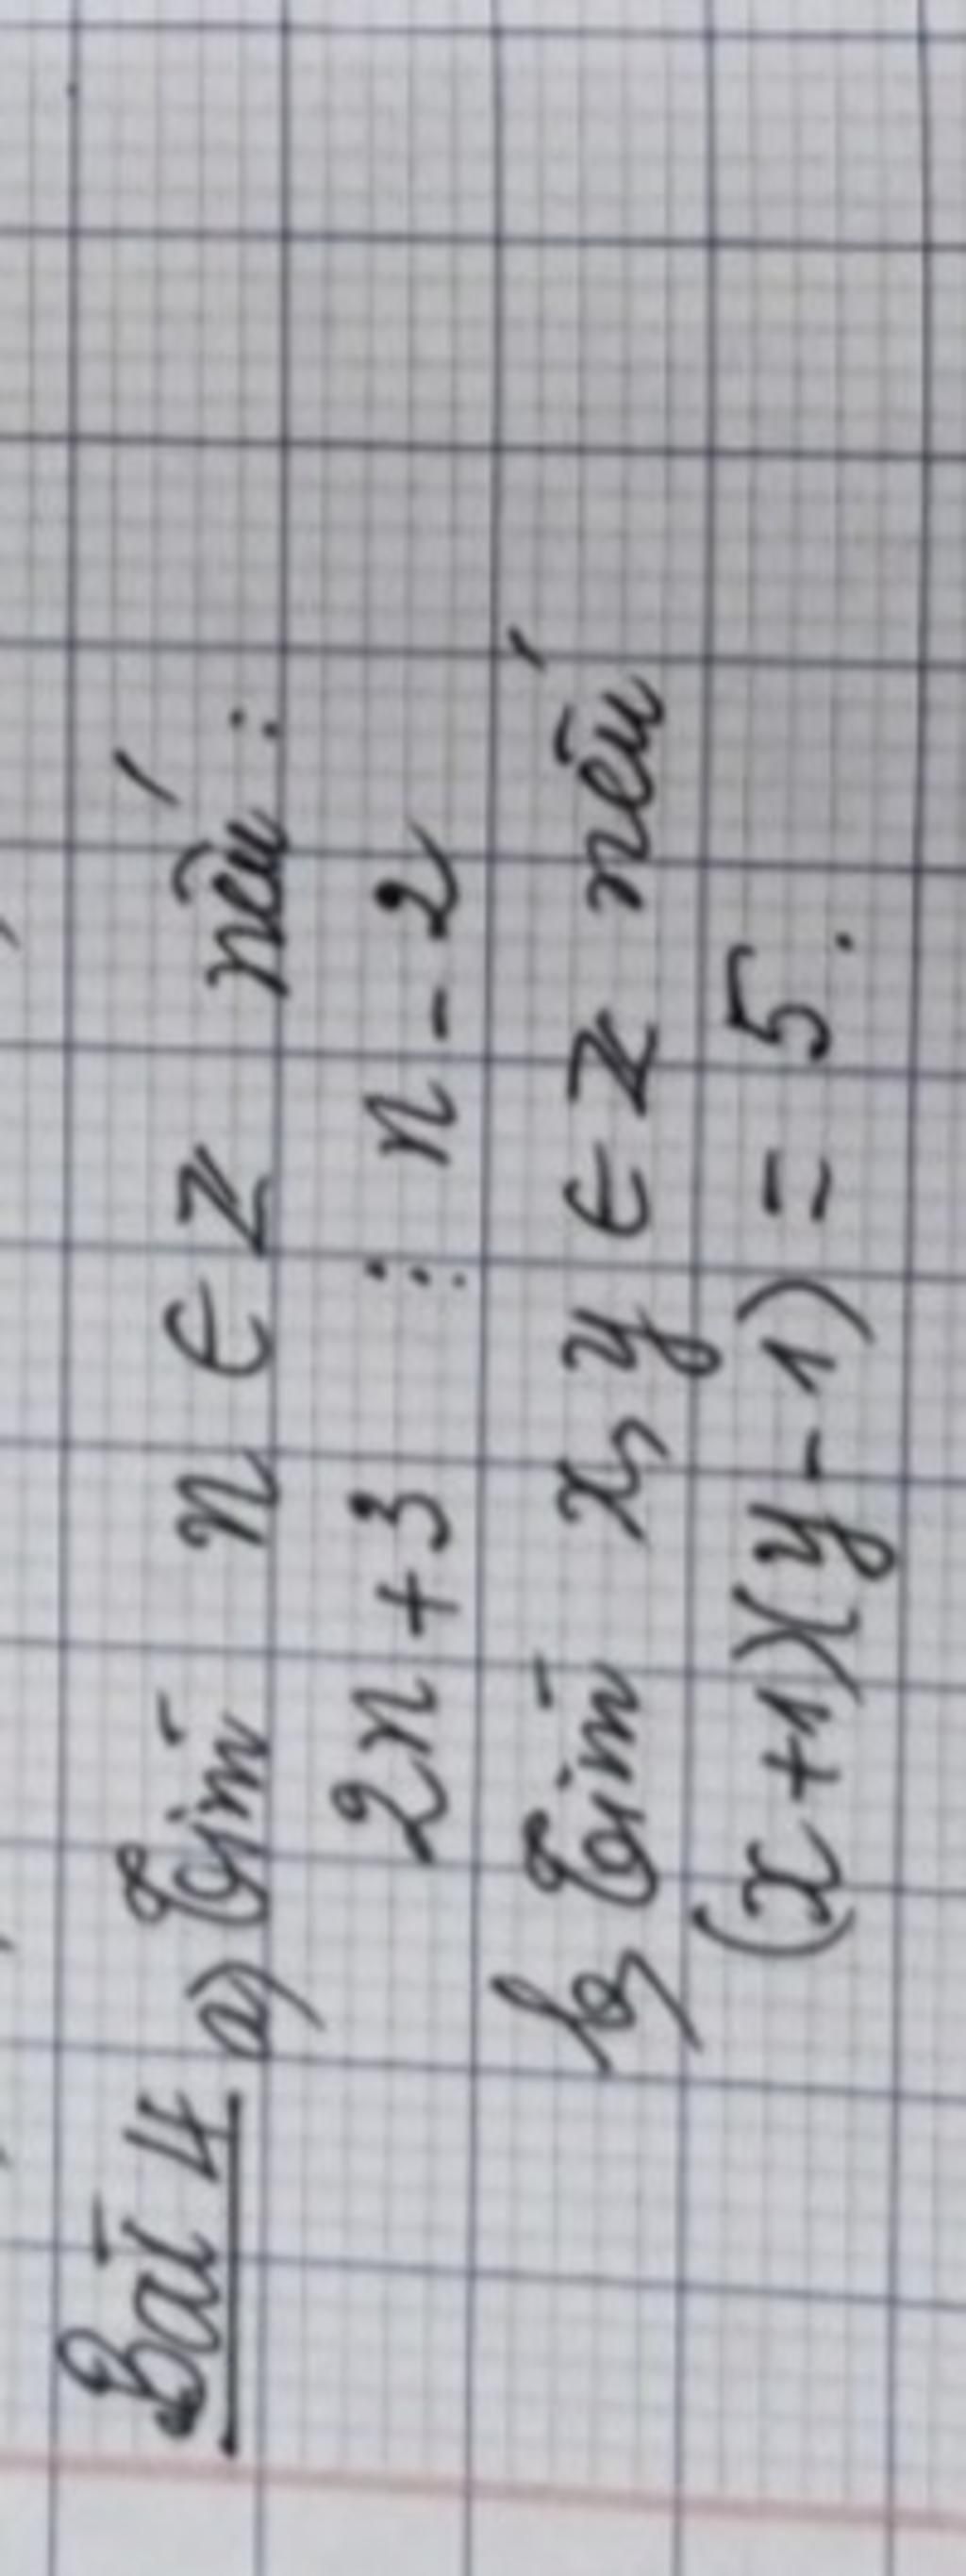 Bài 4 a) Tìm n ∈ Z nếu:
2n + 3 ⋮ n - 2
b) Tìm x, y ∈ Z nếu
(x + 1)(y - 1) = 5.